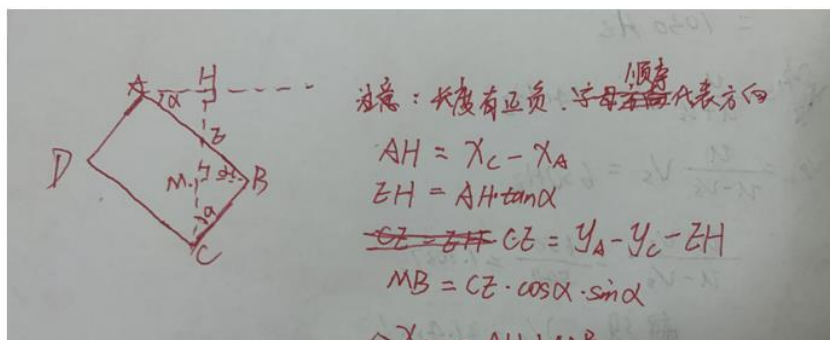 A
H
α
E
D
M
B
α
C
注意：长度有正负，字母顺序代表方向
AH = X_C - X_A
EH = AH·tanα
CE = EH CE = y_A - y_C - EH
MB = CE·cosα·sinα